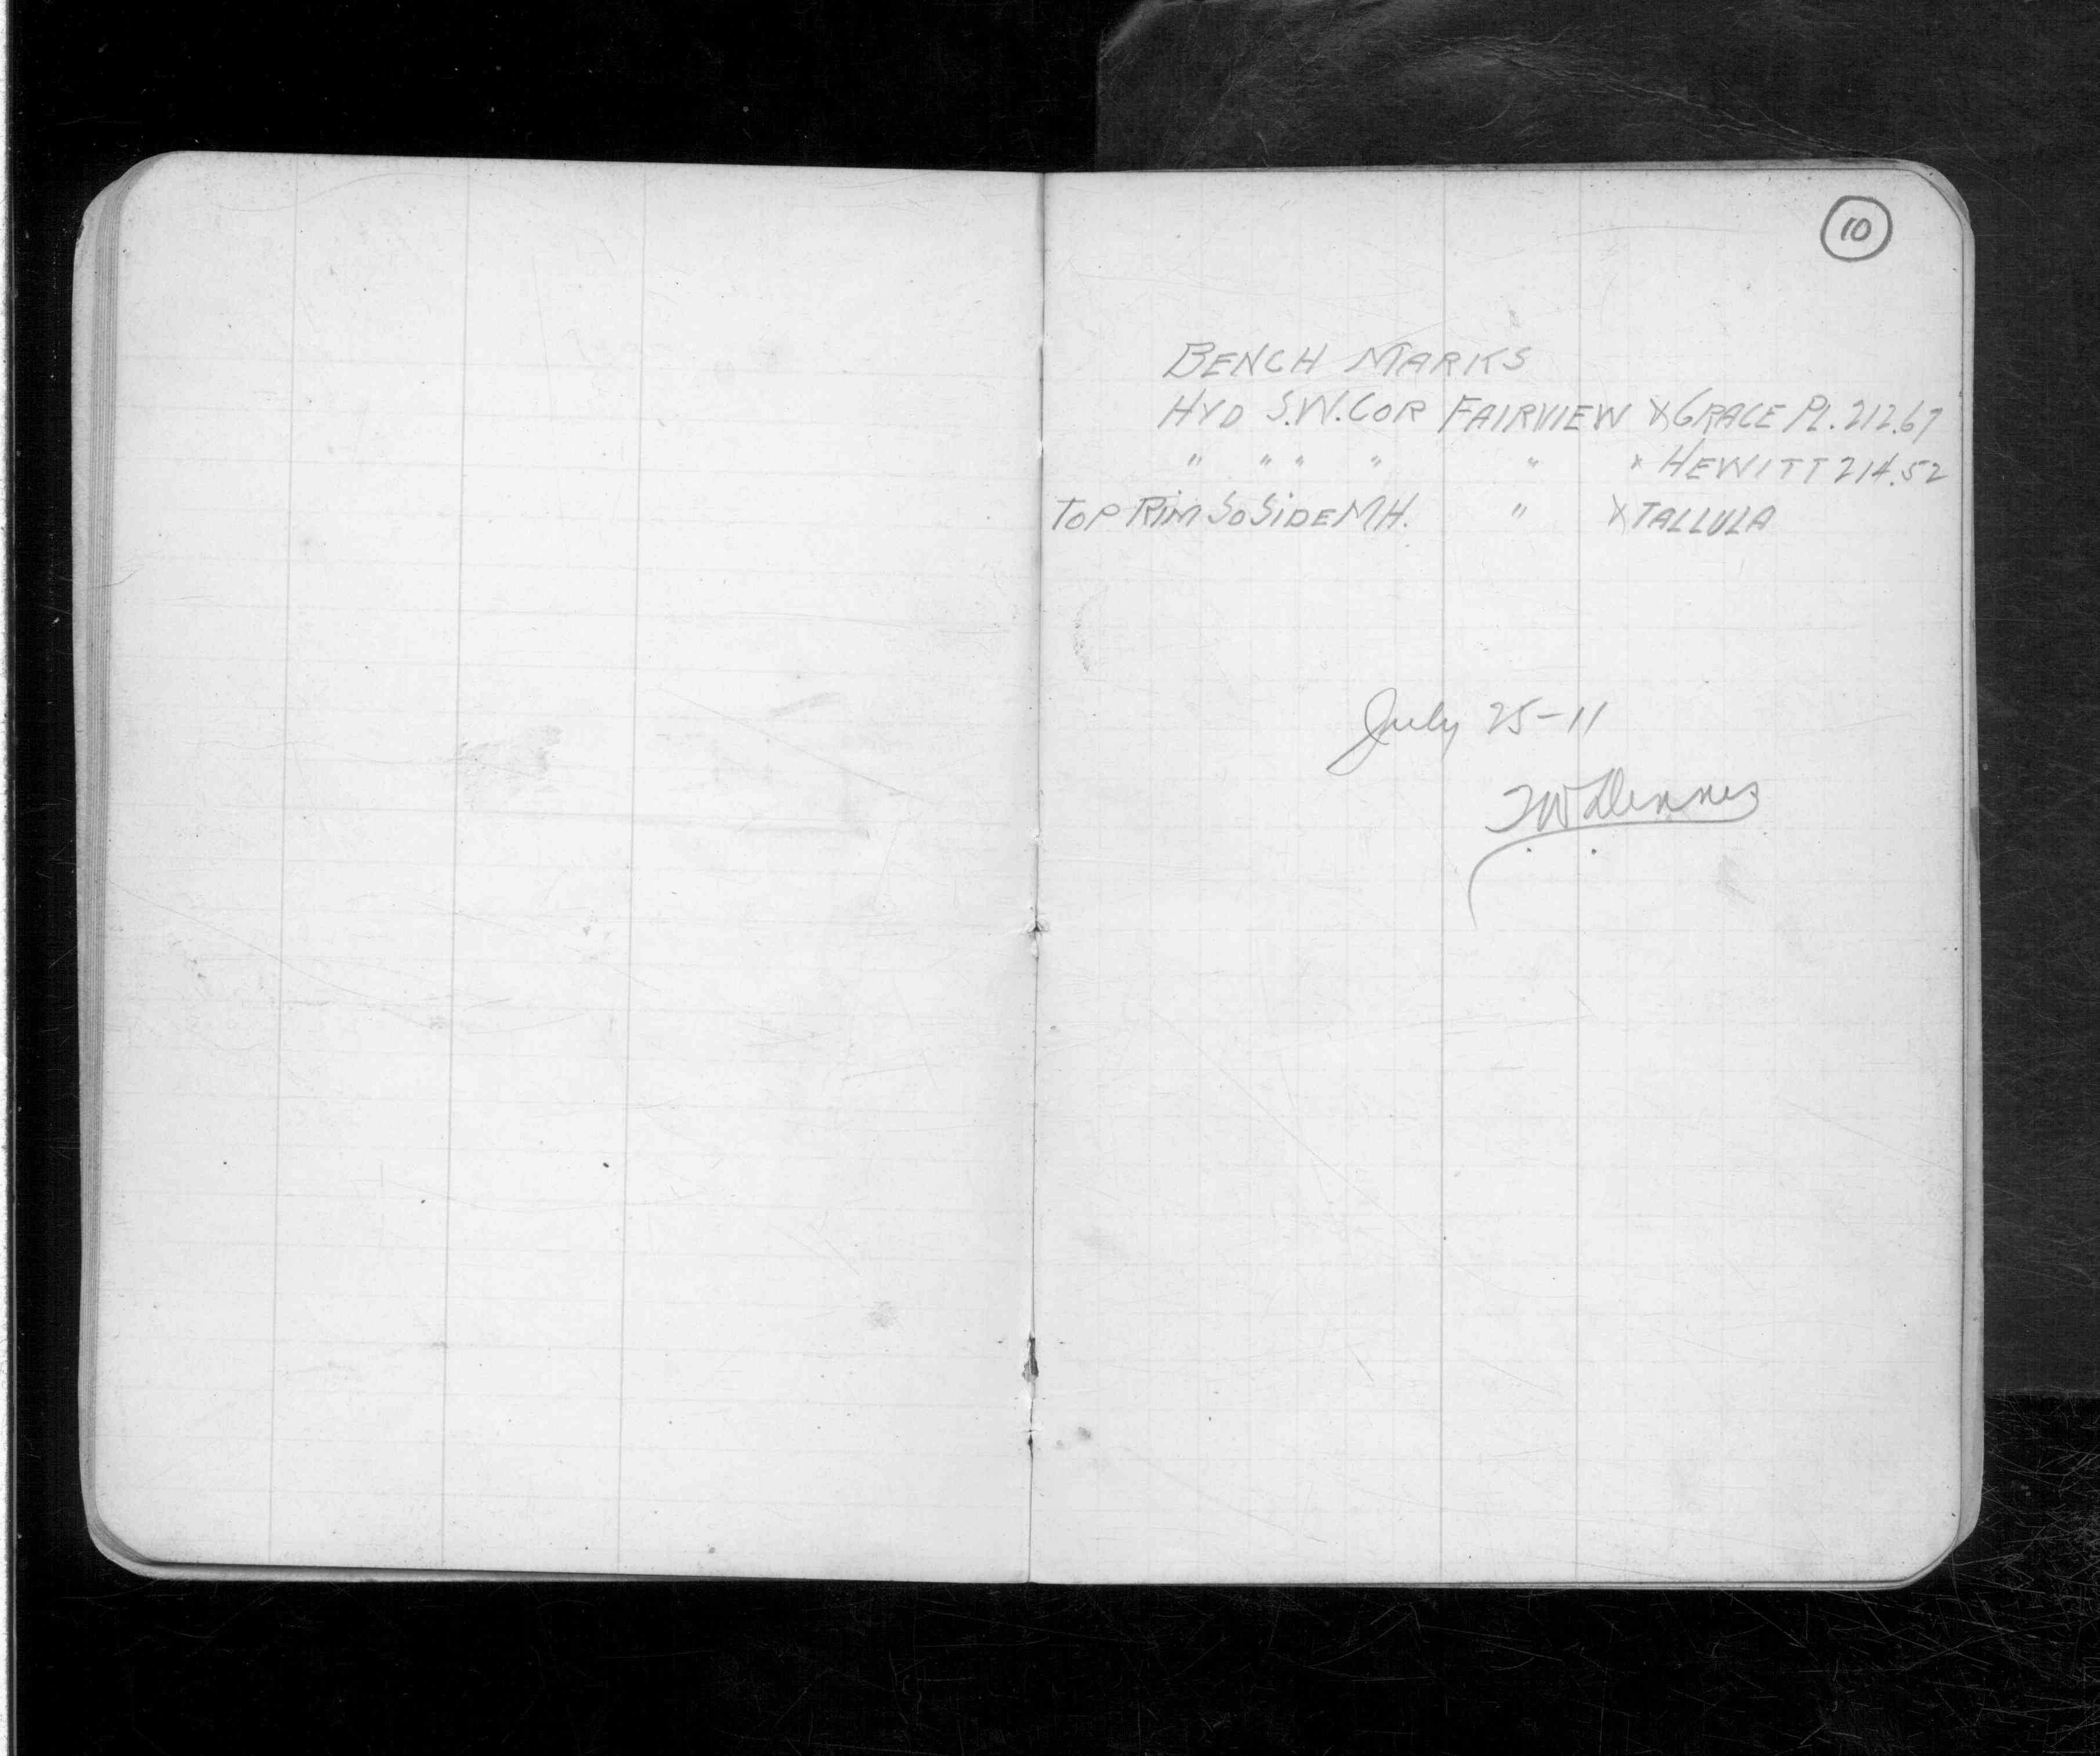 10
BENCH MARKS
HYD S.W. COR FAIRVIEW X GRACE PL. 212.67
" " " " " " HEWITT 214.52
TOP RIM SO SIDE MH. " X TALLULA
July 25-11